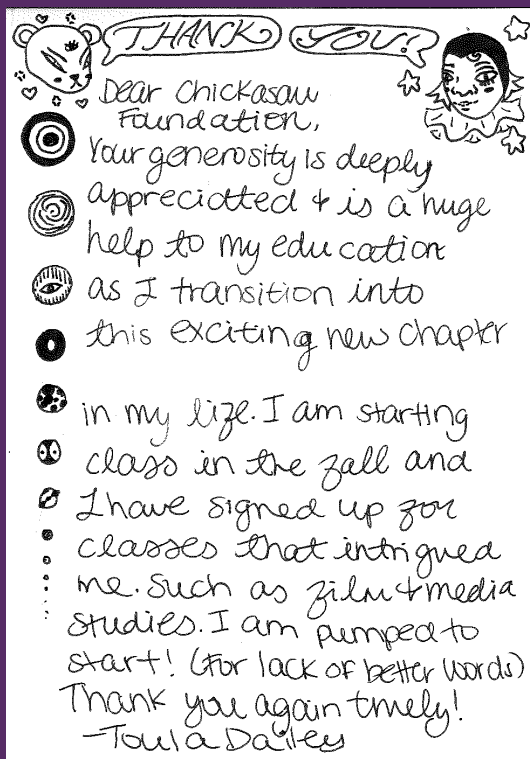 THANK YOU!
Dear Chickasaw
Foundation,
Your generosity is deeply
appreciatted & is a huge
help to my education
as I transition into
this exciting new chapter
in my life. I am starting
class in the fall and
I have signed up for
classes that intrigued
me. Such as film & media
studies. I am pumped to
start! (For lack of better words)
Thank you again truely!
-Toula Dailey